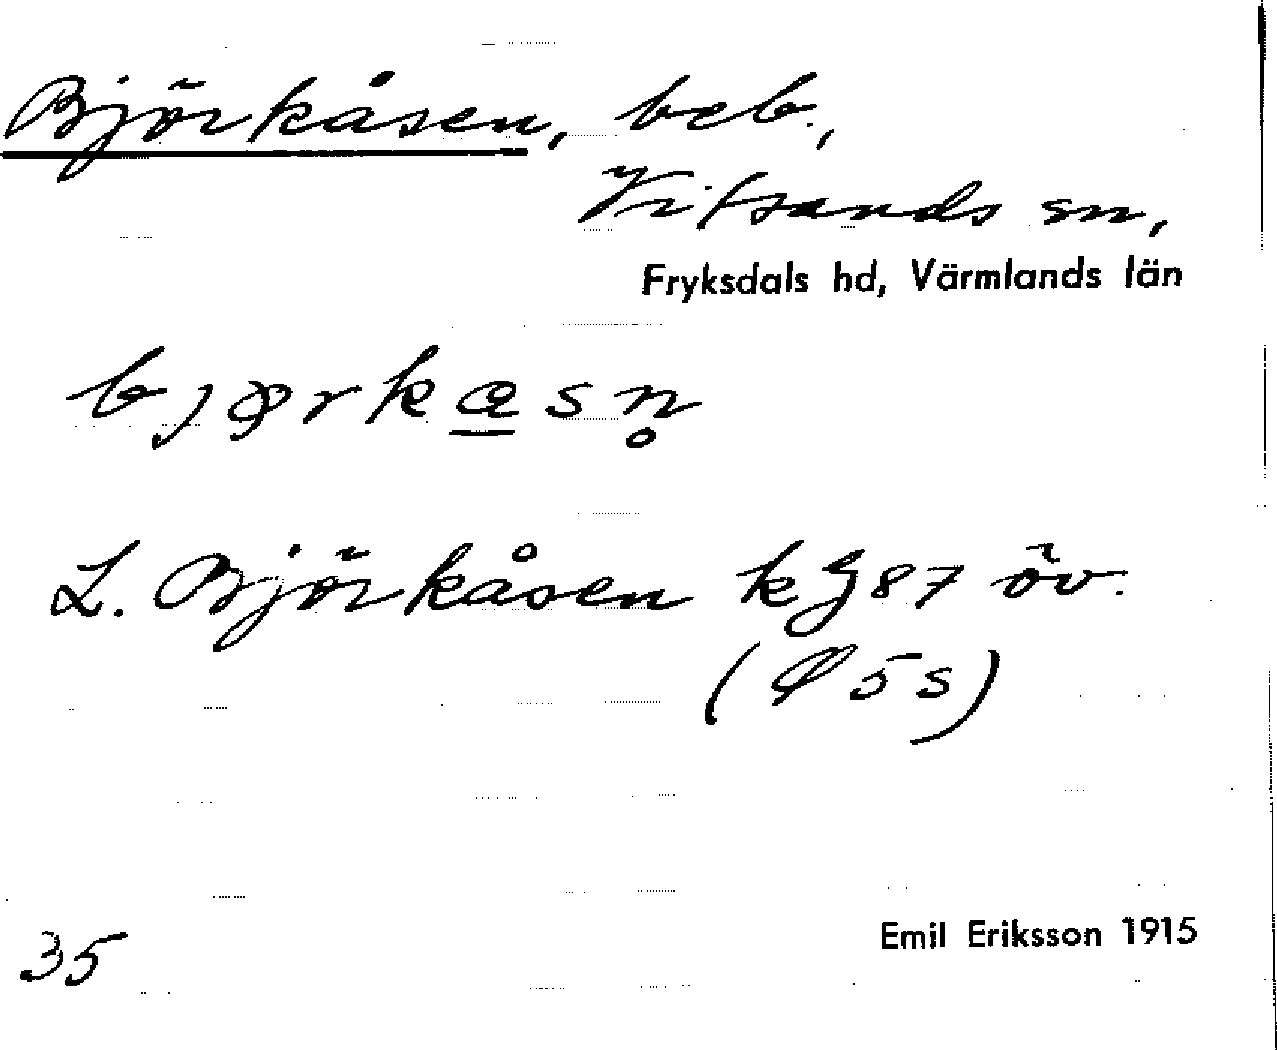 Björkåsen, beb.,
Vitsands sn,
Fryksdals hd, Värmlands län
L. Björkåsen kJ87 öv.
35
Emil Eriksson 1915